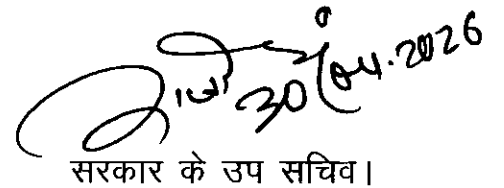 30/04.2026
सरकार के उप सचिव।